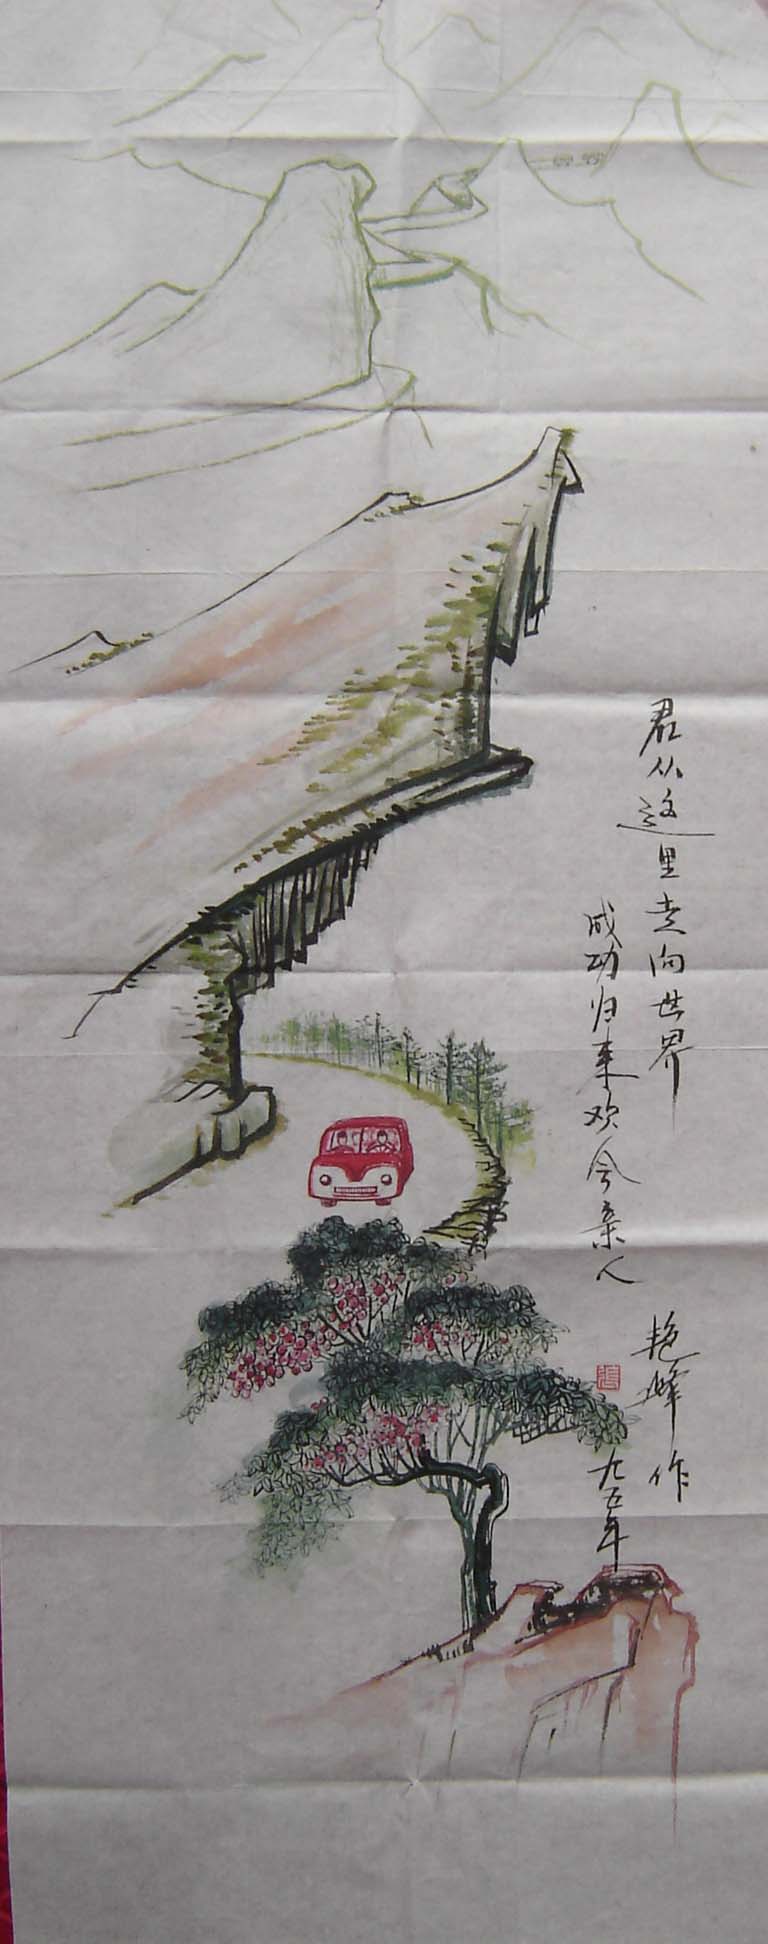 君从这里走向世界
成功归来欢会亲人
艳峰作
九五年